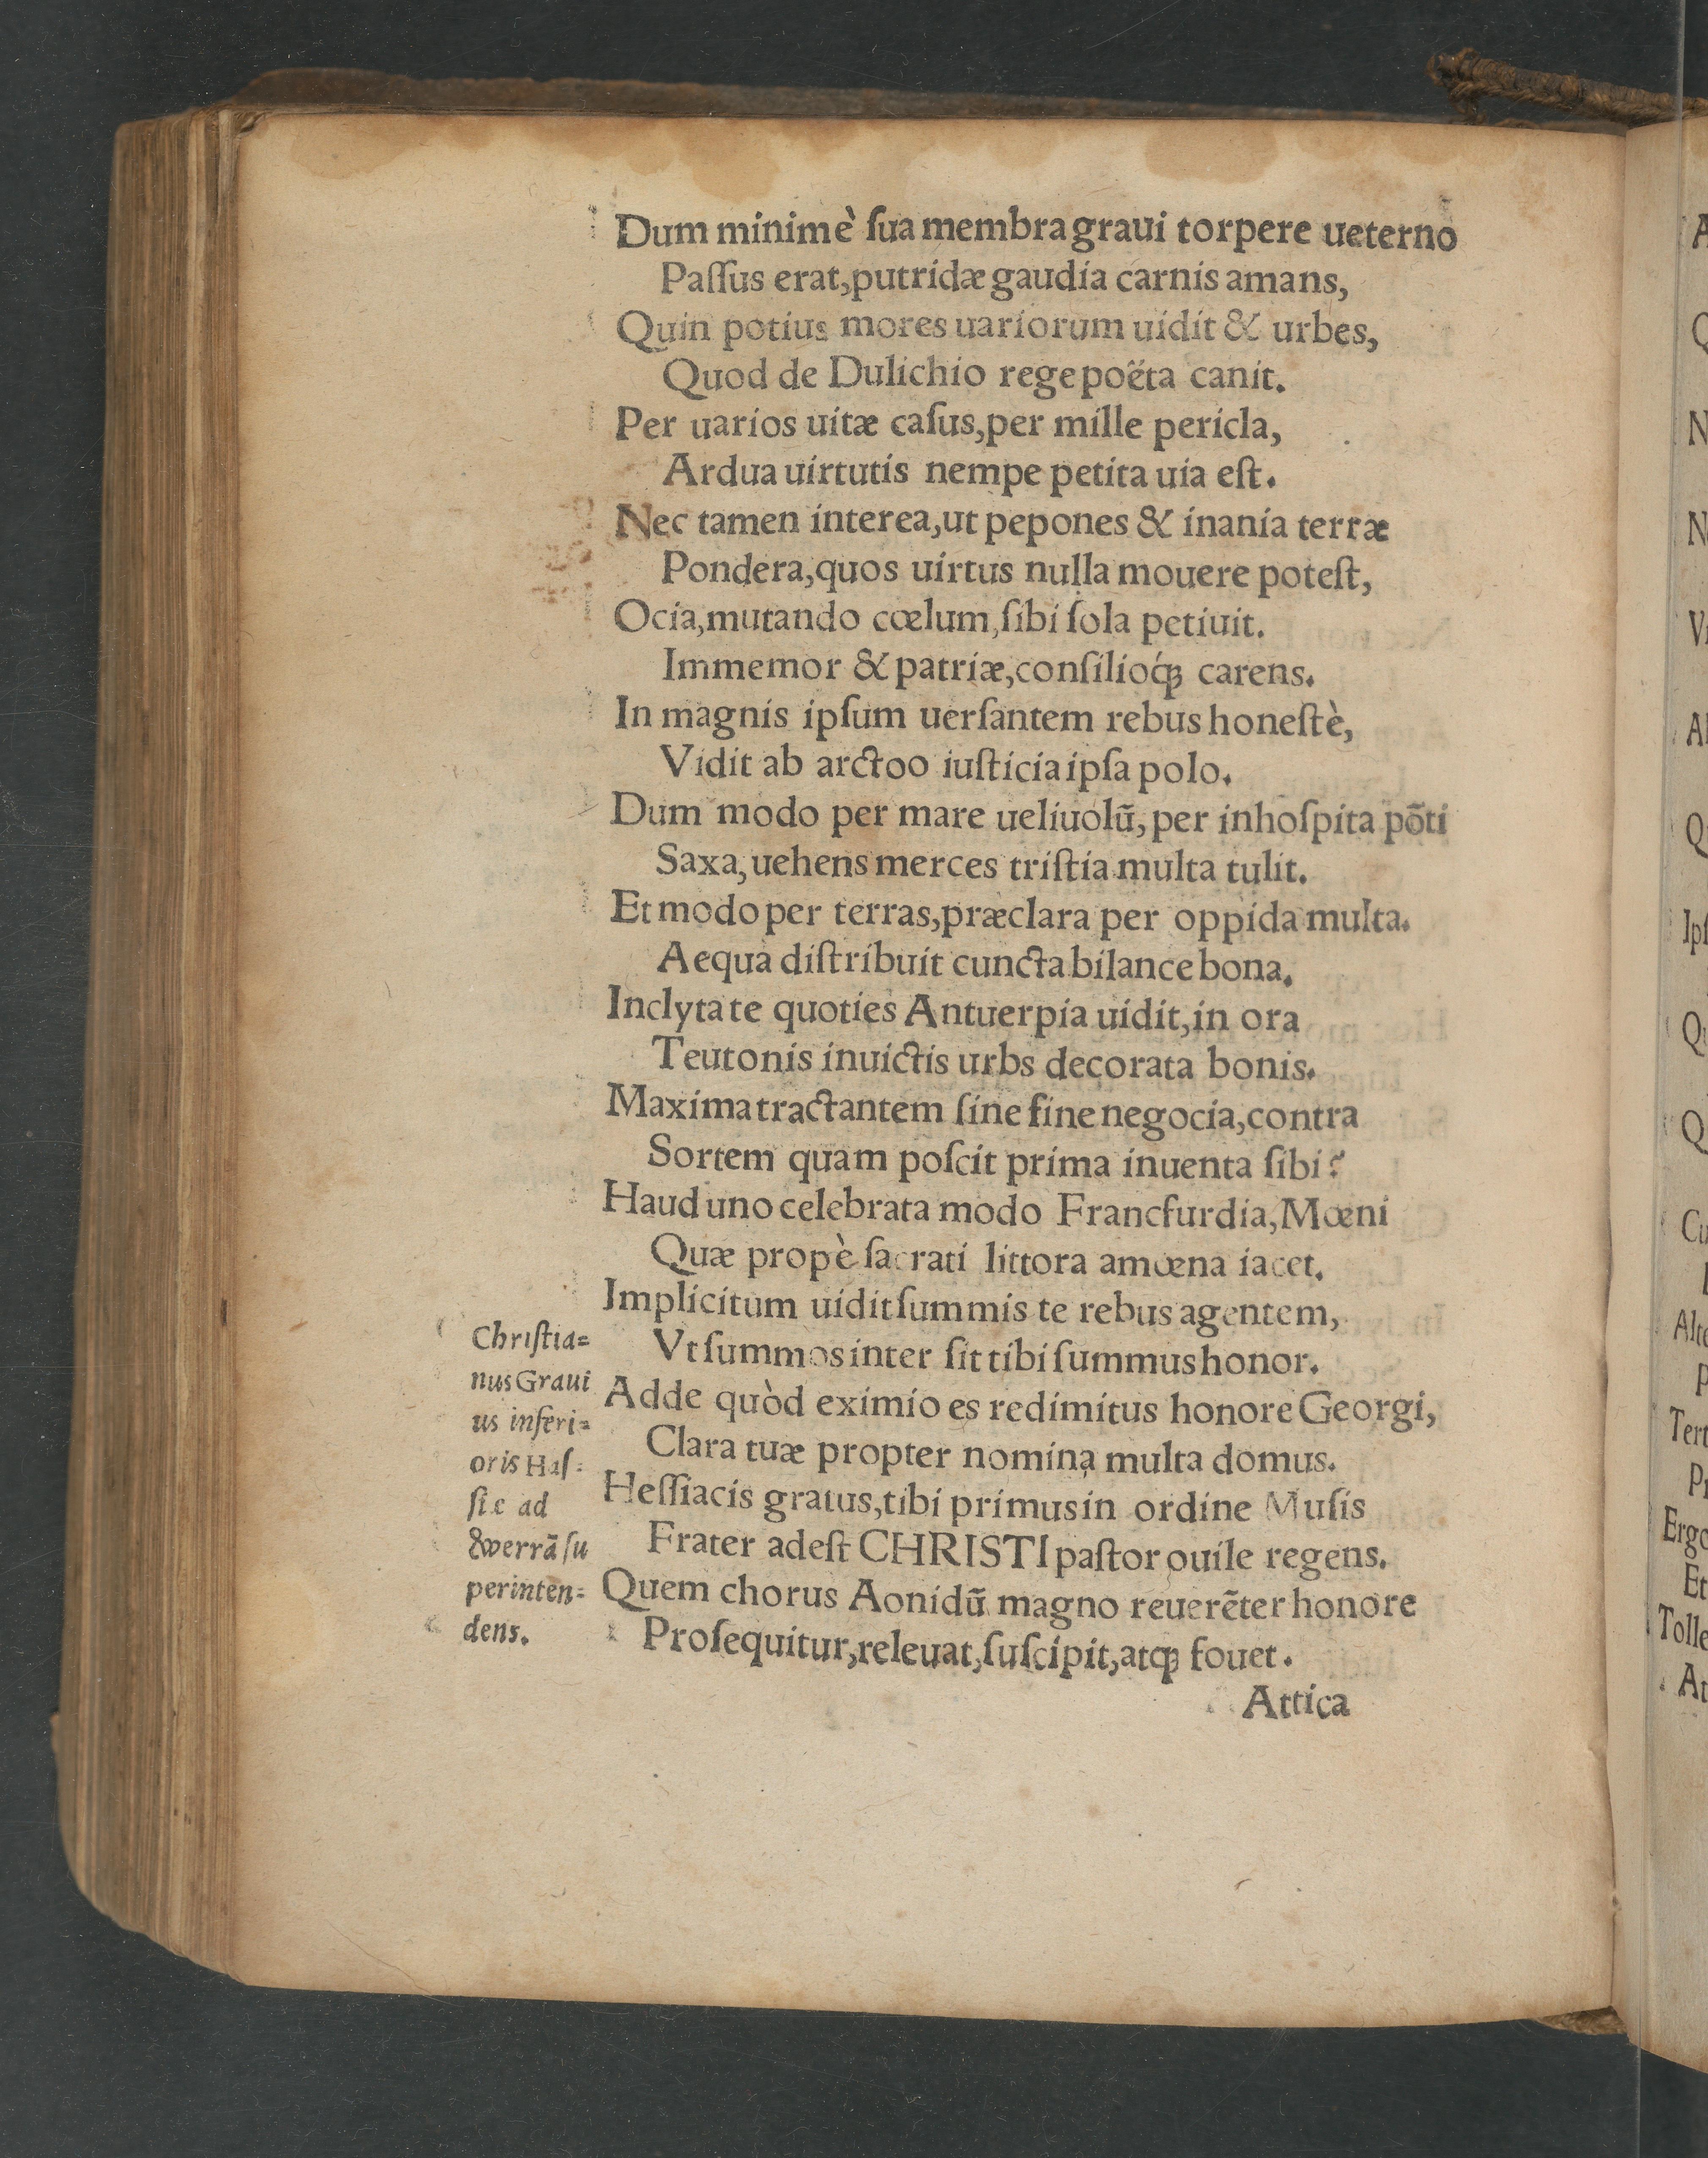 Dum minimè ſua membra graui torpere ueterno
Paſſus erat, putridæ gaudia carnis amans,
Quin potius mores uariorum uidit & urbes,
Quod de Dulichio rege poëta canit.
Per uarios uitæ caſus, per mille pericla,
Ardua uirtutis nempe petita uia eſt.
Nec tamen interea, ut pepones & inania terræ
Pondera, quos uirtus nulla mouere poteſt,
Ocia, mutando cœlum, ſibi ſola petiuit.
Immemor & patriæ, conſilioq́ꝫ carens.
In magnis ipſum uerſantem rebus honeſtè,
Vidit ab arctoo iuſticia ipſa polo.
Dum modo per mare ueliuolū, per inhoſpita pōti
Saxa, uehens merces triſtia multa tulit.
Et modo per terras, præclara per oppida multa.
Aequa diſtribuit cuncta bilance bona.
Inclyta te quoties Antuerpia uidit, in ora
Teutonis inuictis urbs decorata bonis.
Maxima tractantem ſine fine negocia, contra
Sortem quam poſcit prima inuenta ſibi?
Haud uno celebrata modo Francfurdia, Mœni
Quæ propè ſacrati littora amœna iacet.
Implicitum uidit ſummis te rebus agentem,
Vt ſummos inter ſit tibi ſummus honor.
Adde quòd eximio es redimitus honore Georgi,
Clara tuæ propter nomina multa domus.
Heſſiacis gratus, tibi primus in ordine Muſis
Frater adeſt CHRISTI paſtor ouile regens.
Quem chorus Aonidū magno reuerēter honore
Proſequitur, releuat, ſuſcipit, atqꝫ fouet.
Attica
Chriſtia=
nus Graui
us inferi=
oris Haſ=
ſiæ ad
&werrā ſu
perinten=
dens.